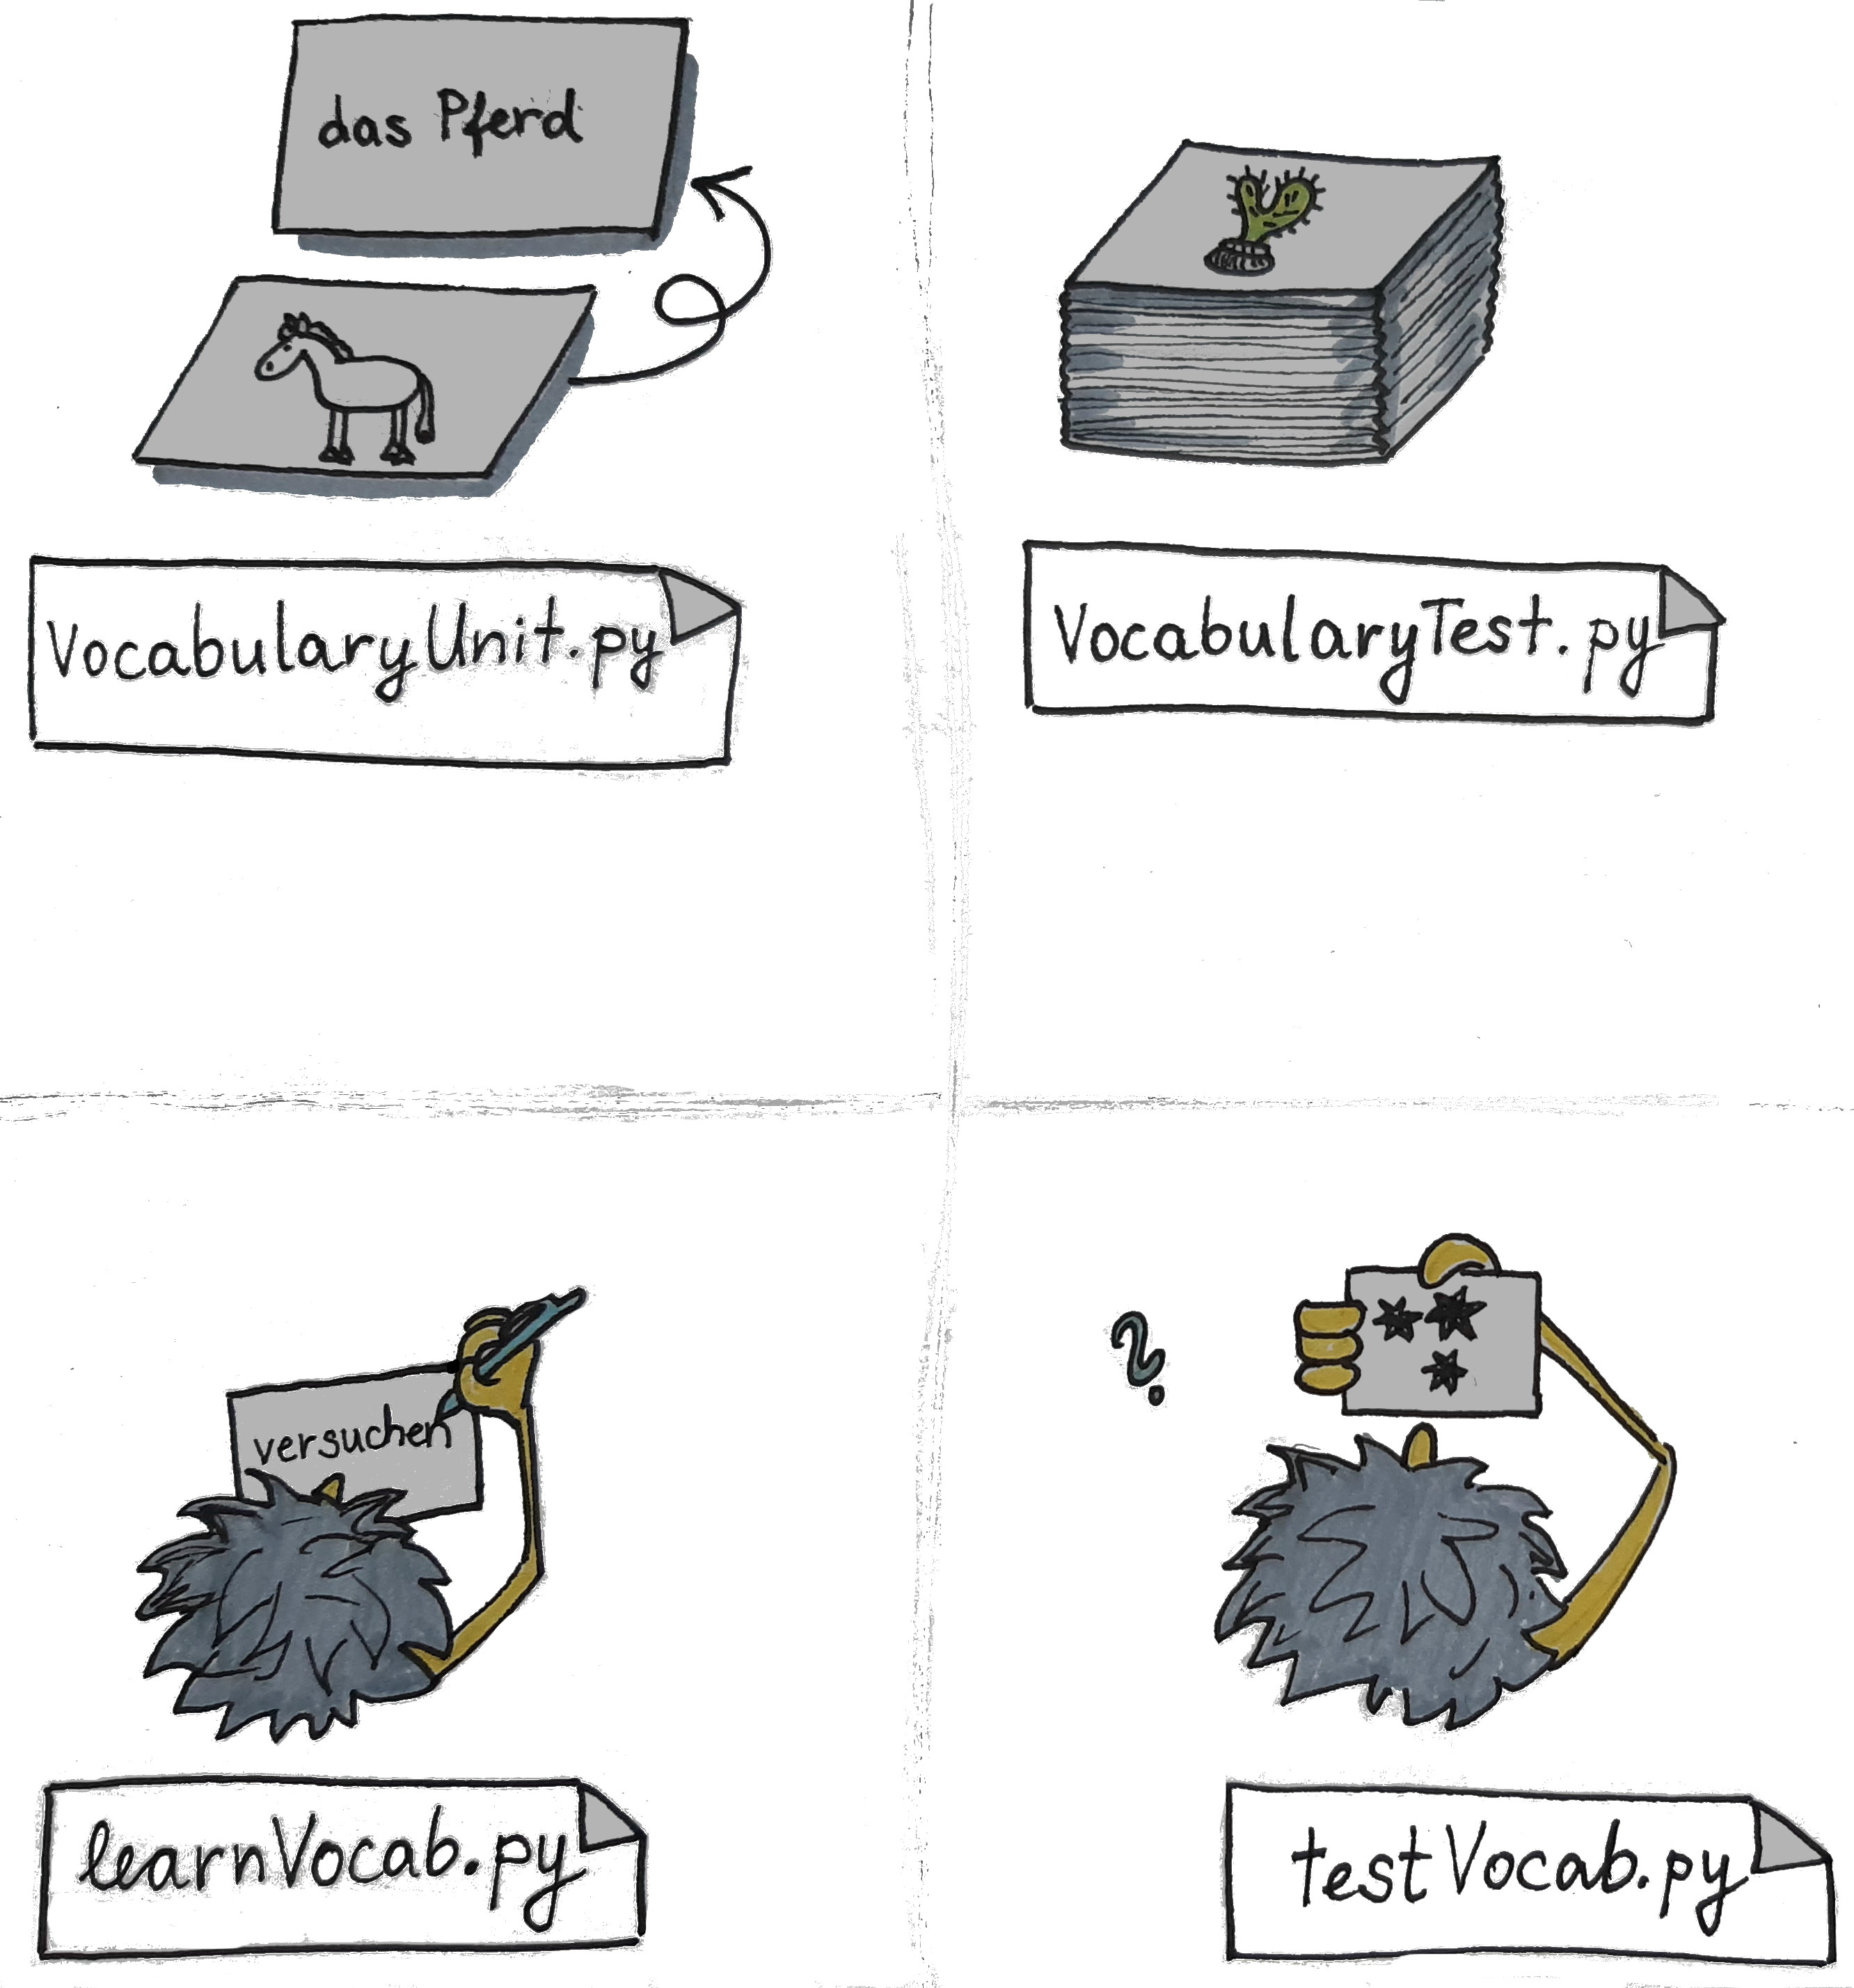 das Pferd
VocabularyUnit.py
VocabularyTest.py
versuchen
?
learnVocab.py
testVocab.py